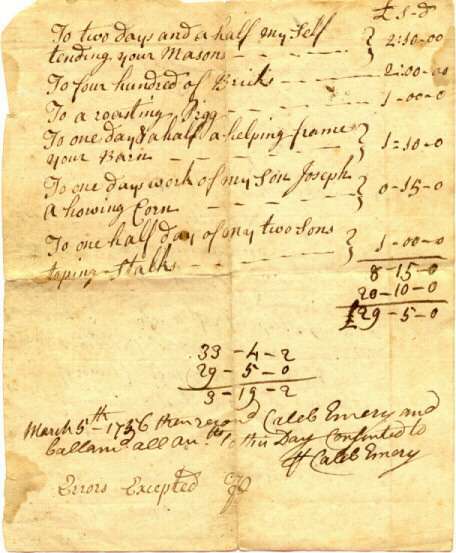 £ - s - d
To two days and a half my self
tending your Masons - - } 2:10-00
To four hundred of Bricks - - - - 2:00-00
To a roasting Pigg - - - - 1-00-0
To one day & a half a helping frame
your Barn - - - - } 1-10-0
To one days work of my son Joseph
a howing Corn - - - } 0-15-0
To one half day of my two sons
toping Stalks - - - } 1-00-0
8-15-0
20-10-0
£29-5-0
33-4-2
29-5-0
3-19-2
March 5th - 1736 then Caleb Emery and
all this Day Consented to
Caleb Emery
Errors Excepted